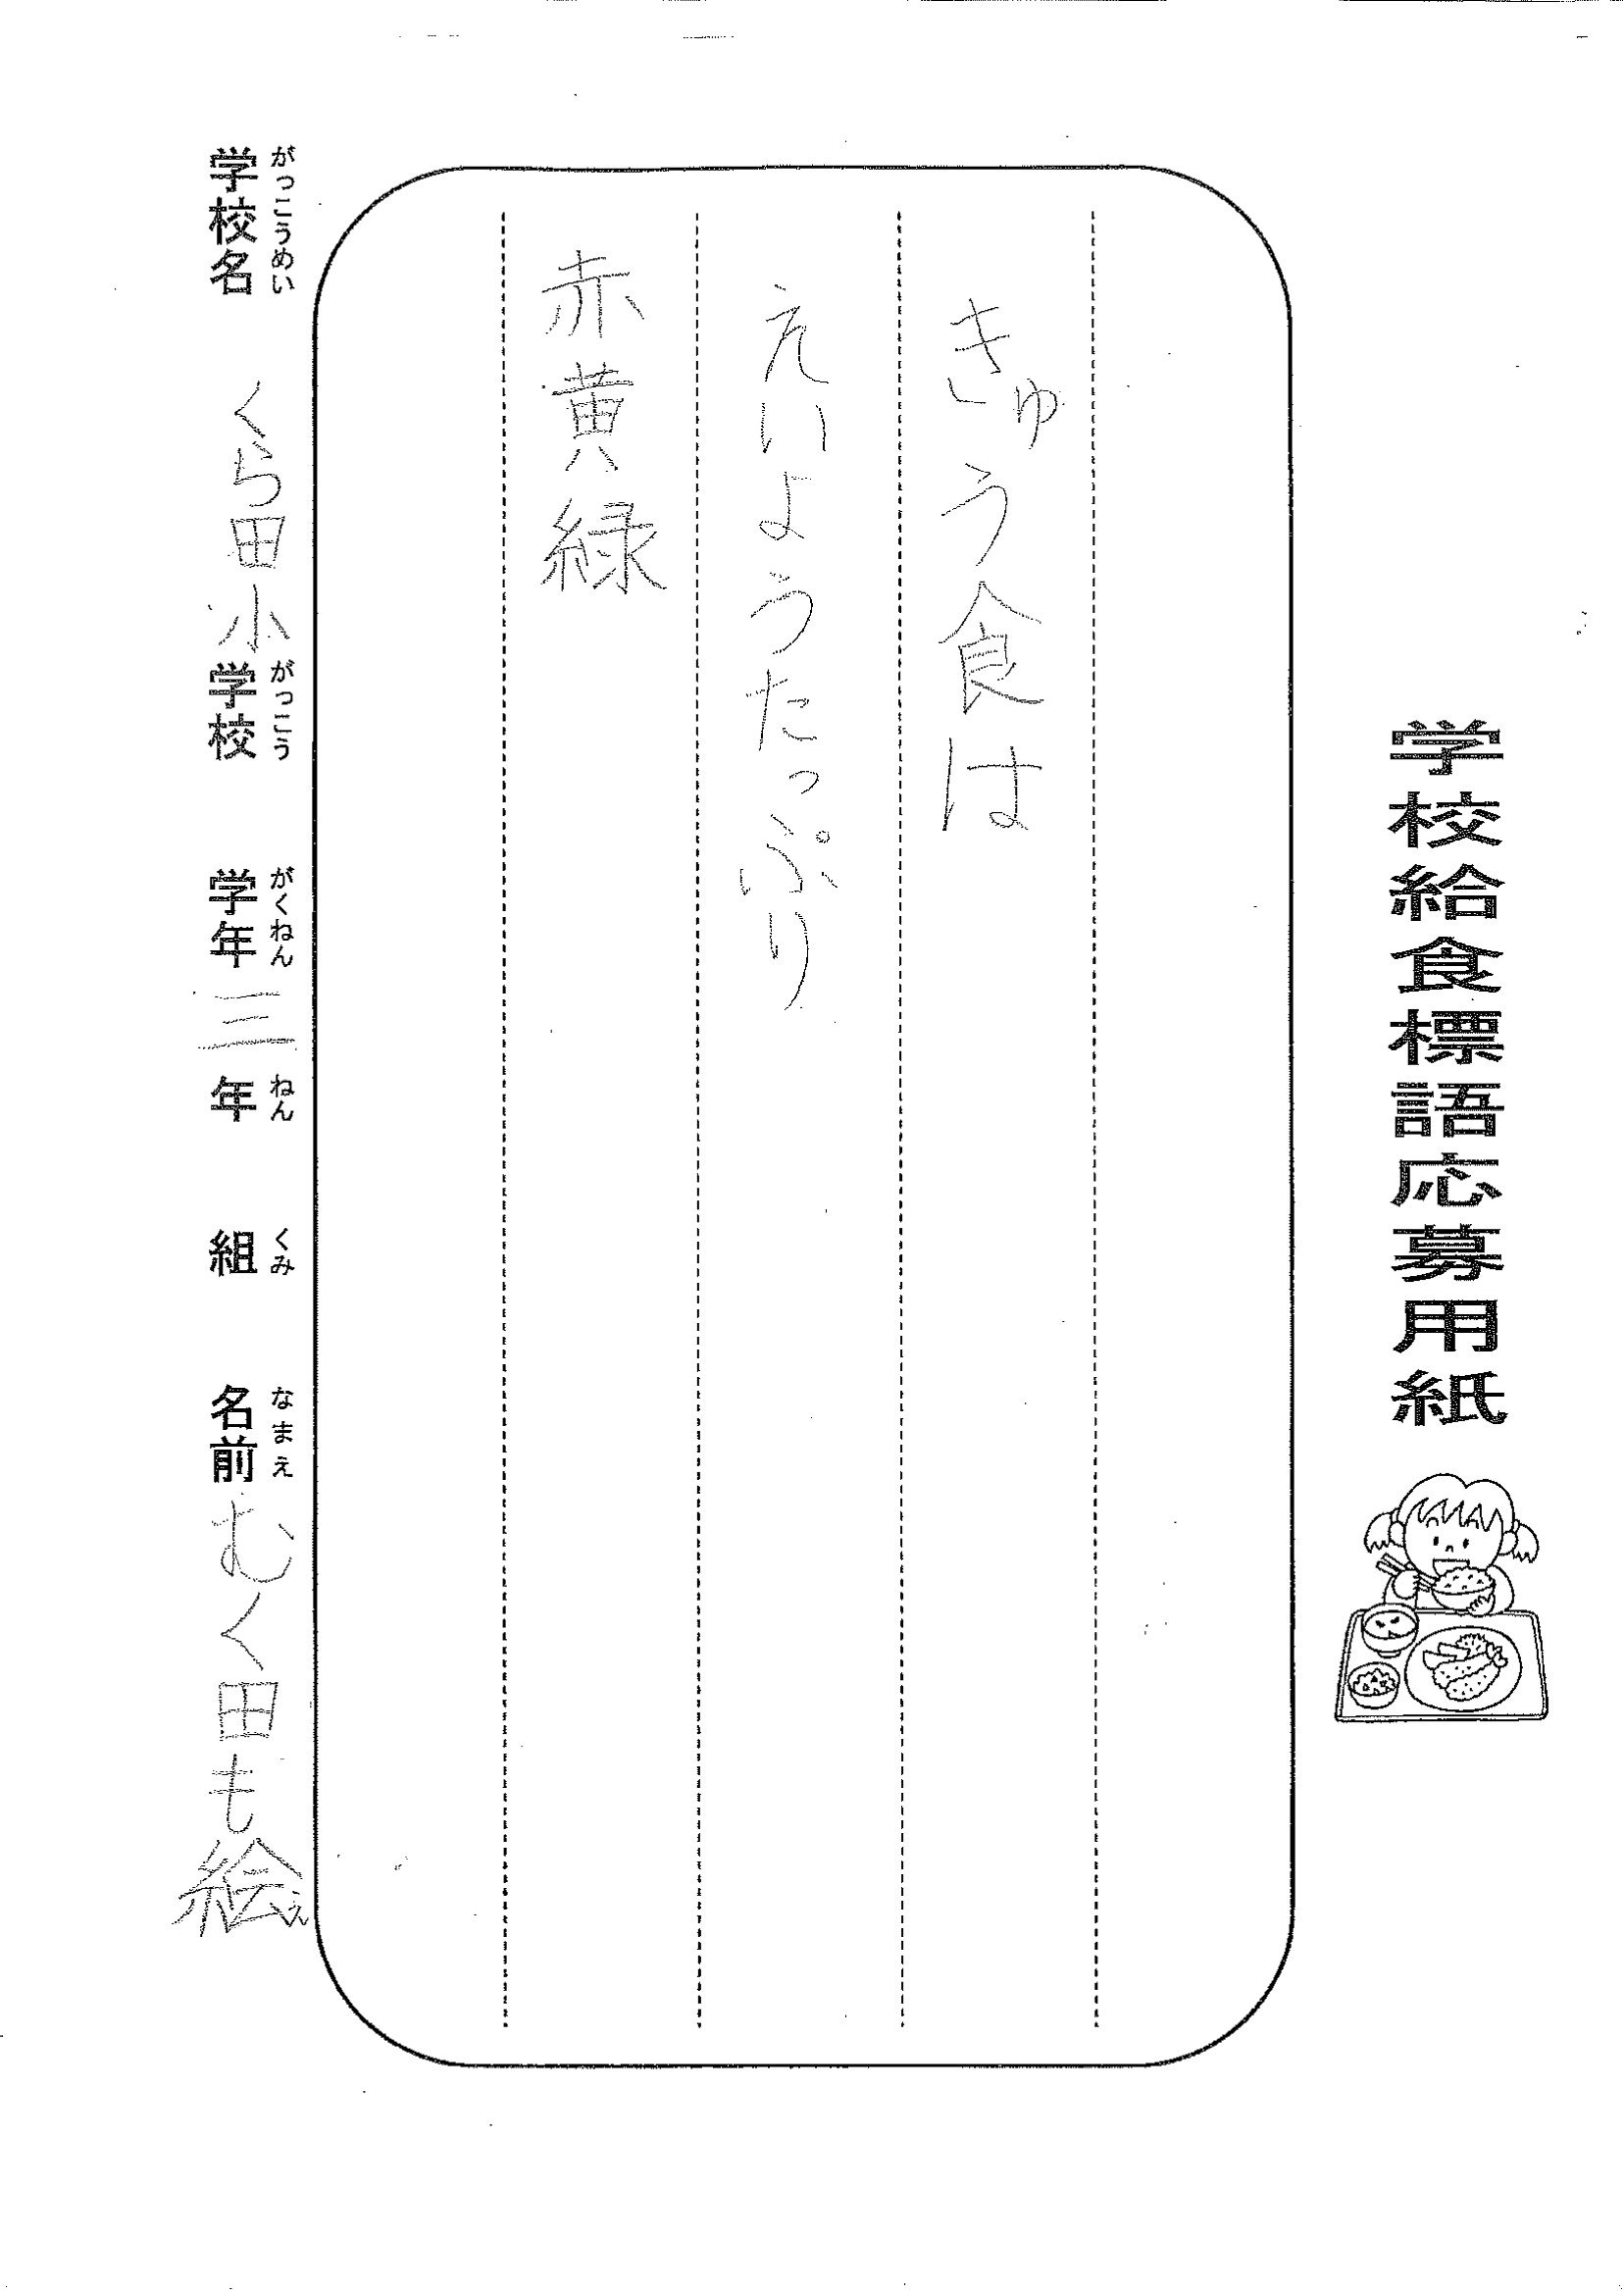 学校給食標語応募用紙
きゅう食は
えいようたっぷり
赤黄緑
がっこうめい がっこう がくねん ねん くみ なまえ
学校名 くら田小学校 学年三年 組 名前むく田も絵
え